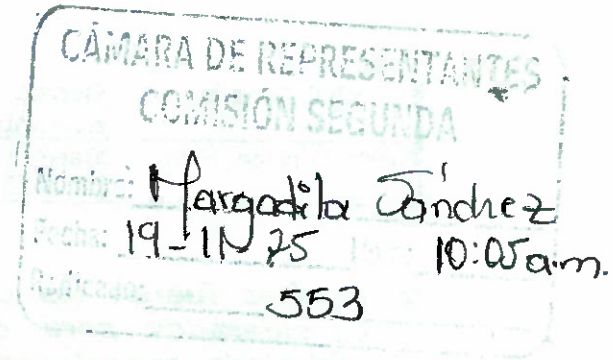 CÁMARA DE REPRESENTANTES
COMISIÓN SEGUNDA
Nombre: Margadila Sánchez
Fecha: 19-11-25 10:05 a.m.
Radicado: 553